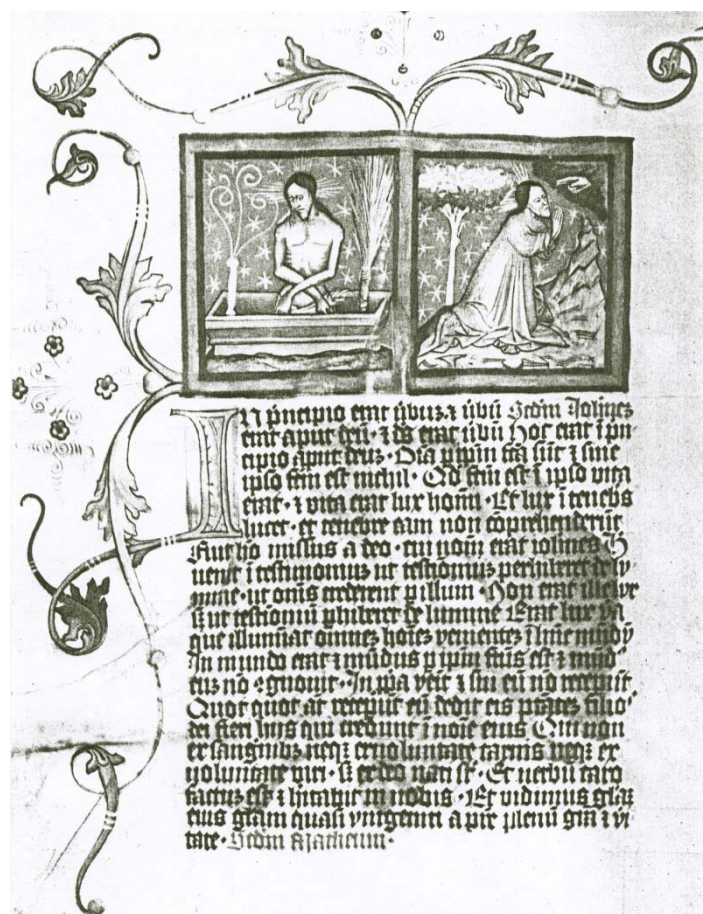 In pͥncipio erat ůbuz ⁊ ůbū Scdm Joħnez
erat aput deū · ⁊ ds erat ůbū Hoc erat ī pͥn
cipio aput deuz · Oīa p ip̄m fc̄a sūt ⁊ sine
ipso fcm̄ est nichil · Qd fcm̄ est ī ipso vita
erat · ⁊ vita erat lux hoīm · Et lux ī tenebͥs
lucet · et tenebre eam non cōprehenderūt
Fuit hō missus a deo · cui nom̄ erat ioħnes H
uenit ī testimoniuz ut testioniuz perhiberet de lu
mine · ut om̄s crederent p illum · Non erat ille lux
s; ut testioniū phiberet de lumine Erat lux ůa
que illuminat omnez hoīez venientez ī hūc mūdū
In mundo erat ⁊ mūdus p ip̄m fc̄us est ⁊ mūd
eūz nō ɔgnouit · In ꝓpͥa veīt ⁊ sui eū nō receperūt
Quot quot āt receperūt eū dedit eis ptātez filio
dei fieri hijs qui credunt ī noīe eius Qui non
ex sanguibz neqz ex uoluntate carnis neqz ex
uoluntate viri · s; ex deo nati st̄ · Et uerbū caro
factuz est ⁊ hītauit in nobis · Et vidimus glāz
eius glām quasi vnigeniti a pr̄e plenū grā ⁊ vͥ
tate · Scdm Matheum ·